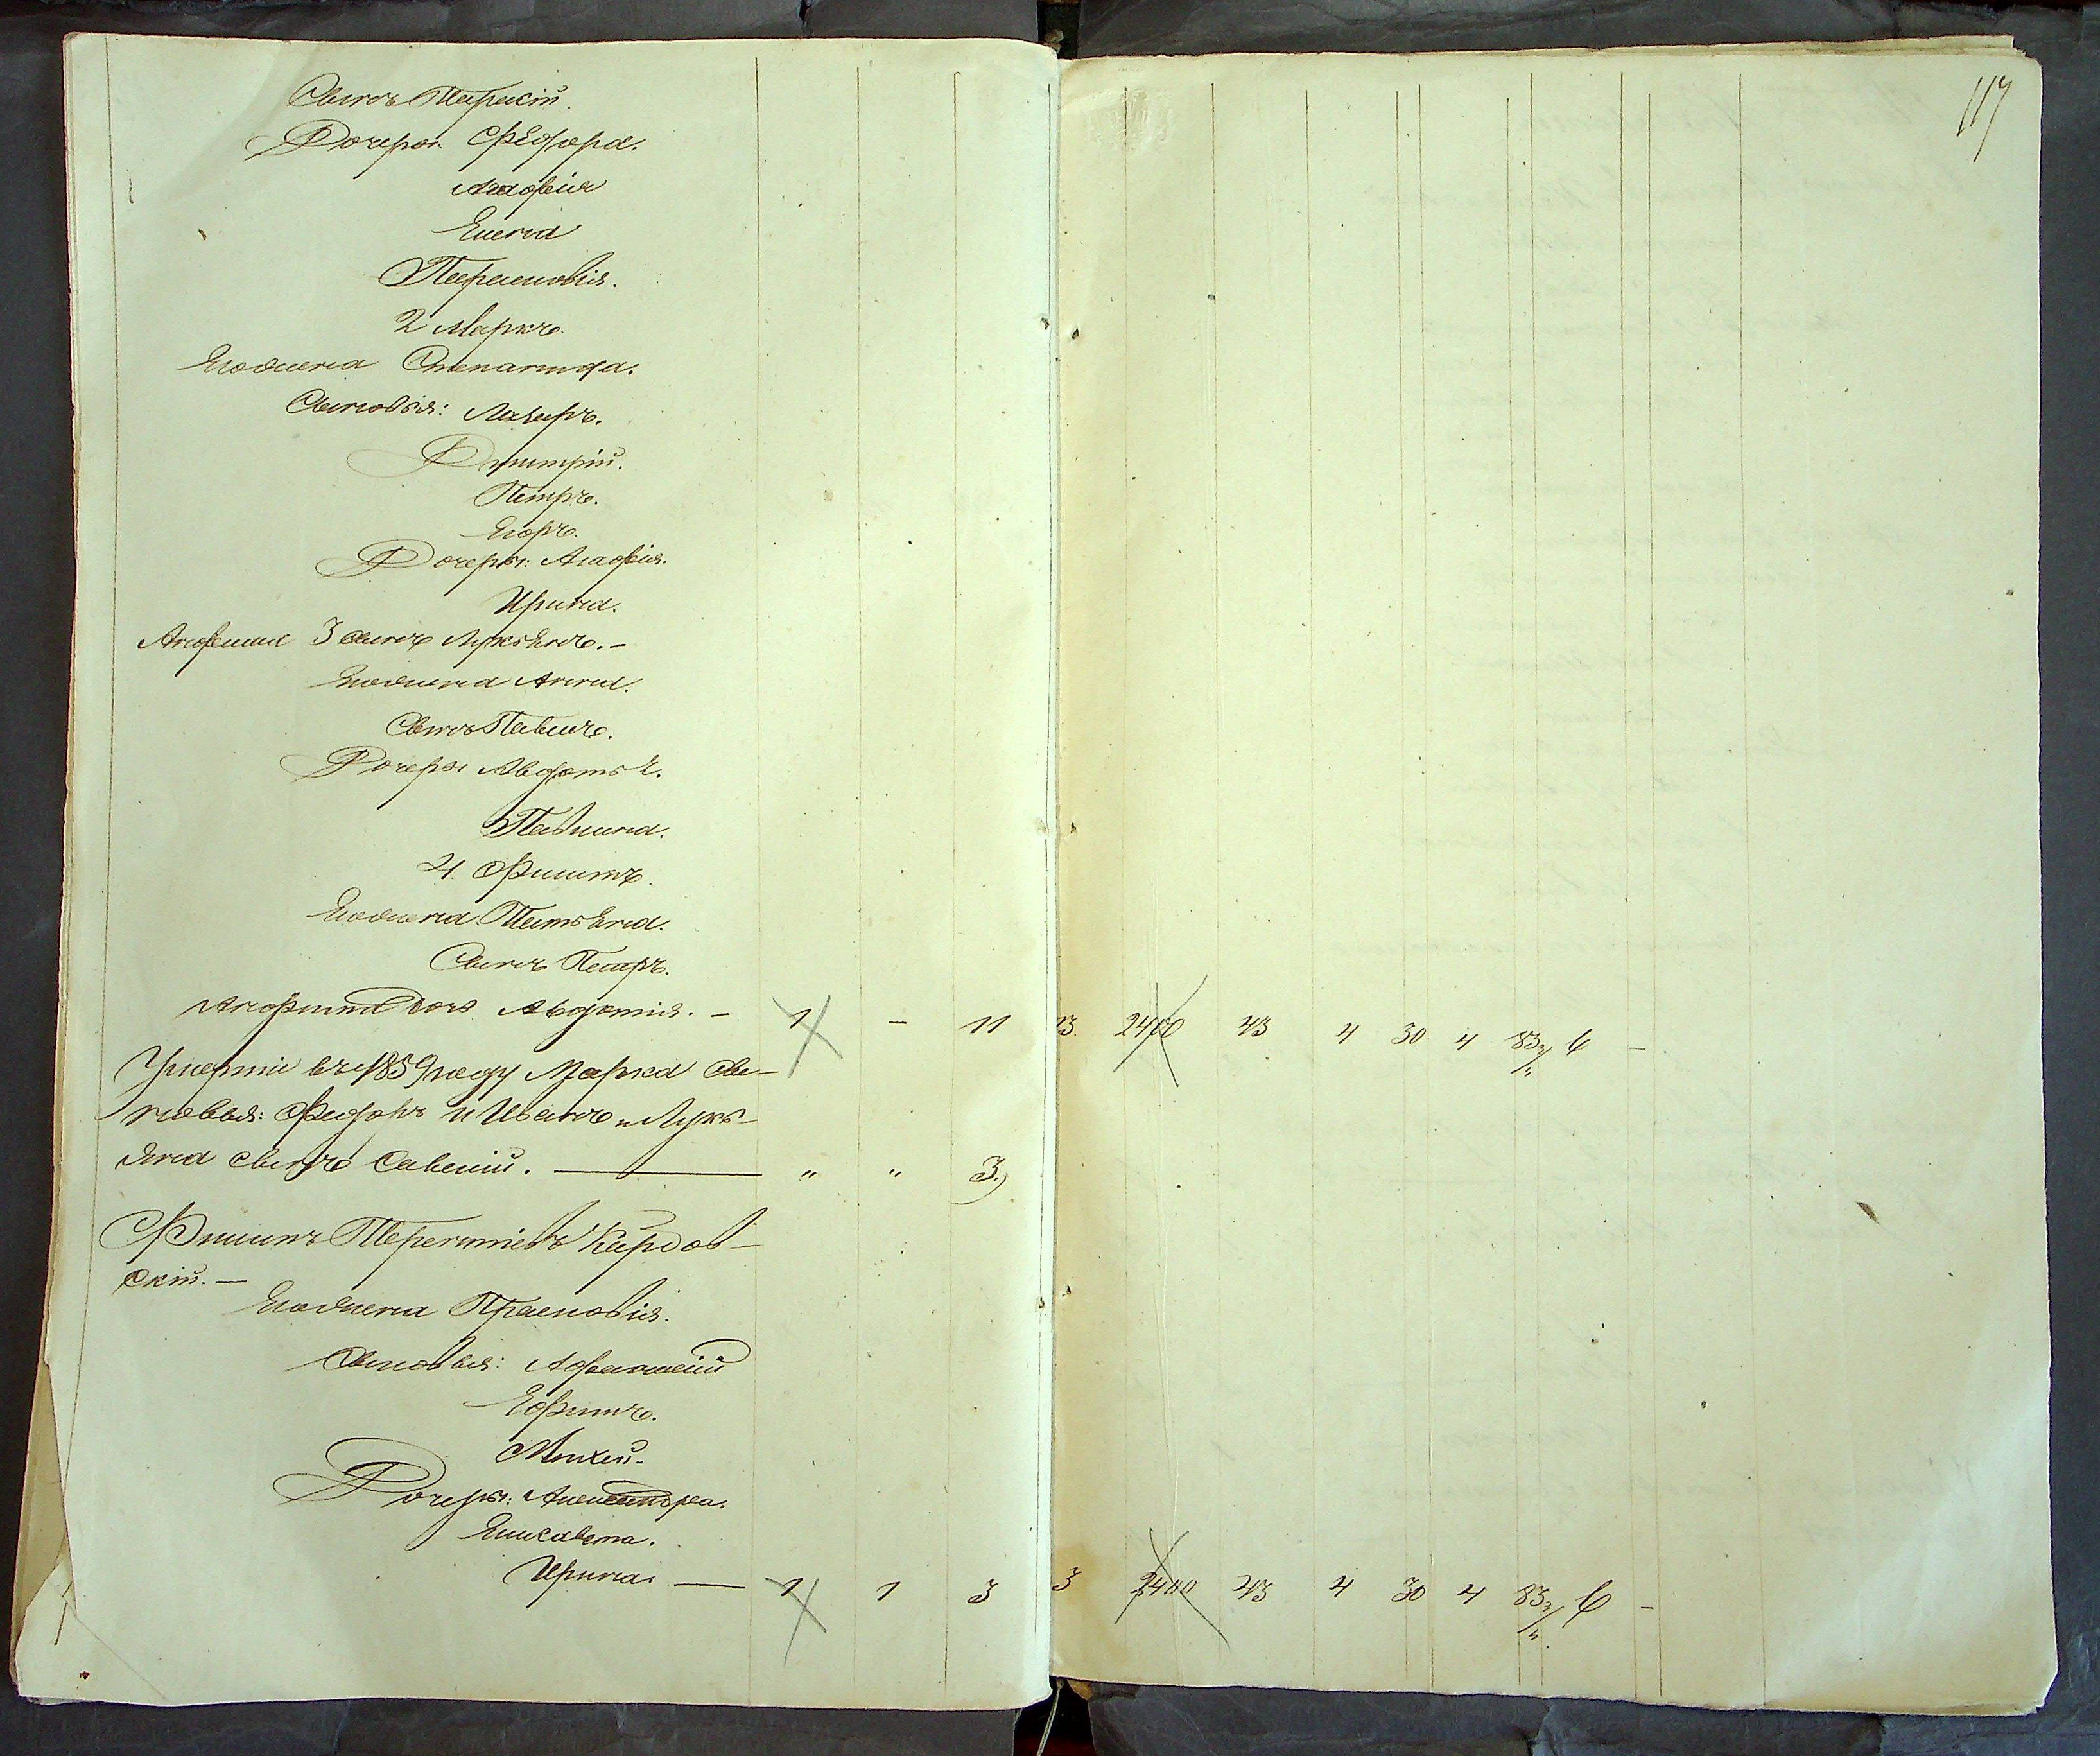 117
Сынъ Тарасій.
Дочери: Фѣдора.
Агафія
Елена
Парасковія.
2 Маркъ.
Его жена Степанида.
Сыновья: Лазарь.
Дмитрій.
Петръ.
Егоръ.
Дочери: Агафія.
Ирина.
3 сынъ Лукьянъ. –
Его жена Анна.
Сынъ Павелъ.
Дочери Авдотья.
Павлина.
4. Филипъ.
Его жена Татьяна.
Сынъ Назаръ.
дочь Авдотія. – 1 – 11 13. 2400 43 4 30 4 83 3/4 6 –
Умершіе въ 1859 году Марка сы-
новья: Федоръ и Иванъ и Лукь-
яна сынъ Савелій. — " " 3.)
Филипъ Терентіевъ Карпов-
скій. —
Его жена Прасковія.
Сыновья: Афанасій
Ефимъ.
Мойсей.
Дочери: Александра.
Елисавета.
Ирина. — 1 1 3 3 2400 43 4 30 4 83 3/4 6 –